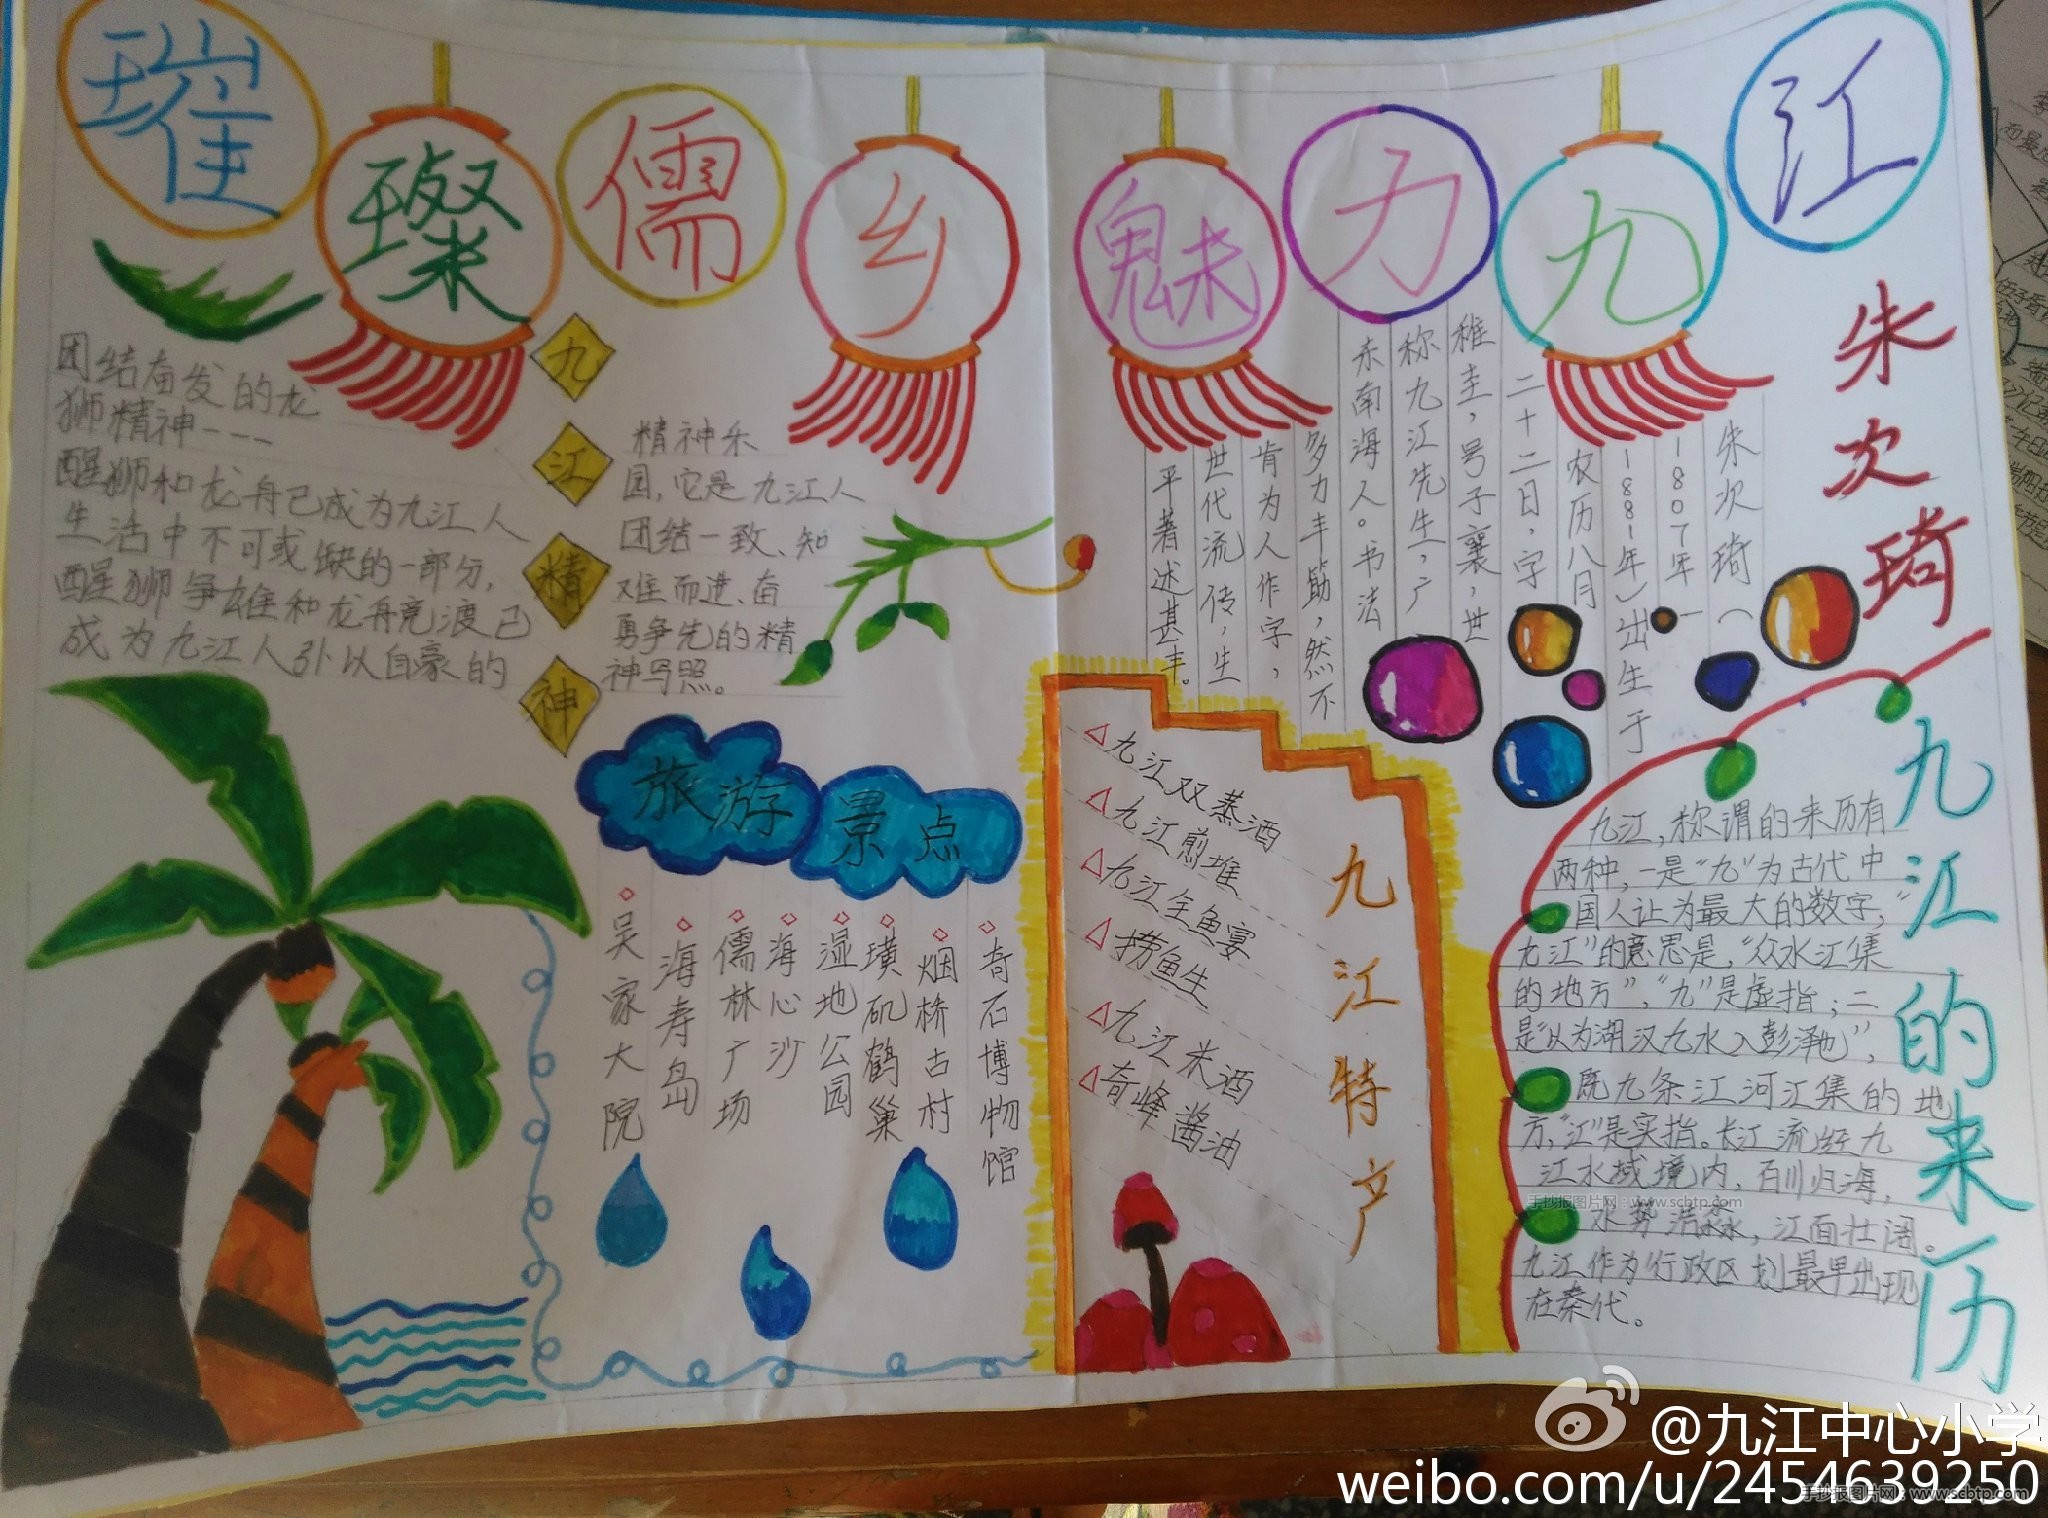 璀璨儒乡魅力九江
团结奋发的龙
狮精神---
醒狮和龙舟已成为九江人
生活中不可或缺的一部分,
醒狮争雄和龙舟竞渡已
成为九江人引以自豪的
九江精神
精神乐
园,它是九江人
团结一致、知
难而进、奋
勇争先的精
神写照。
旅游景点
吴家大院
海寿岛
儒林广场
海心沙
湿地公园
璜矶鹤巢
烟桥古村
奇石博物馆
朱次琦
朱次琦(
1807年—
1881年)出生于
农历八月
二十二日,字
稚圭,号子襄,世
称九江先生,广
东南海人。书法
多力丰筋,然不
肯为人作字,
世代流传,生
平著述甚丰。
九江特产
九江双蒸酒
九江煎堆
九江全鱼宴
捞鱼生
九江米酒
奇峰酱油
九江的来历
九江,称谓的来历有
两种,一是“九”为古代中
国人认为最大的数字,“
九江”的意思是,“众水江集
的地方”,“九”是虚指;二
是“以为湖汉九水入彭泽也”,
既九条江河汇集的地
方,“江”是实指。长江流经九
江水域境内,百川归海,
水势浩淼,江面壮阔。
九江作为行政区划最早出现
在秦代。
手抄报图片网:www.scbtp.com
@九江中心小学
weibo.com/u/2454639250
手抄报图片网:www.scbtp.com